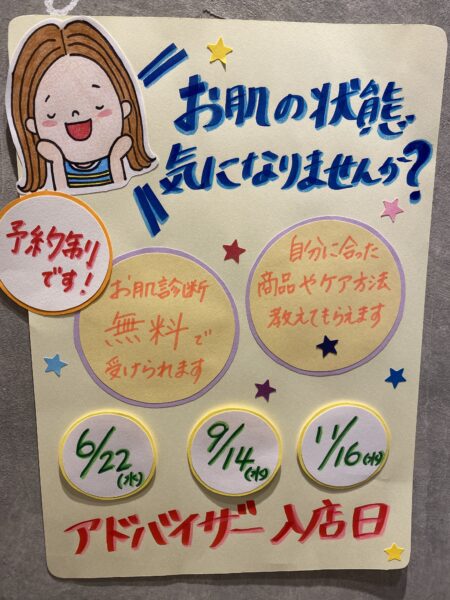 お肌の状態
気になりませんか?
予約制
です!
お肌診断
無料で
受けられます
自分に合った
商品やケア方法
教えてもらえます
6/22(水)
9/14(水)
11/16(水)
アドバイザー入店日